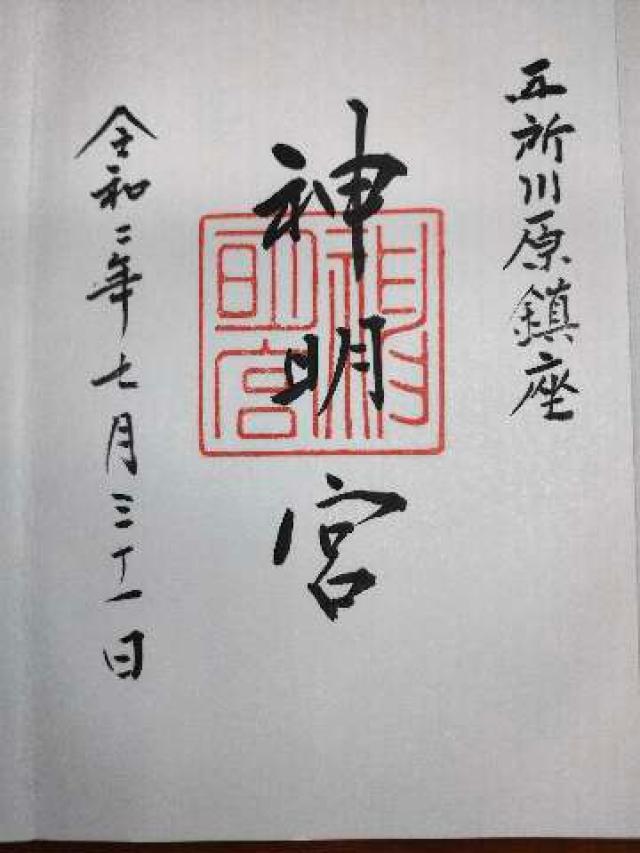 五所川原鎮座
神明宮
令和二年七月三十一日